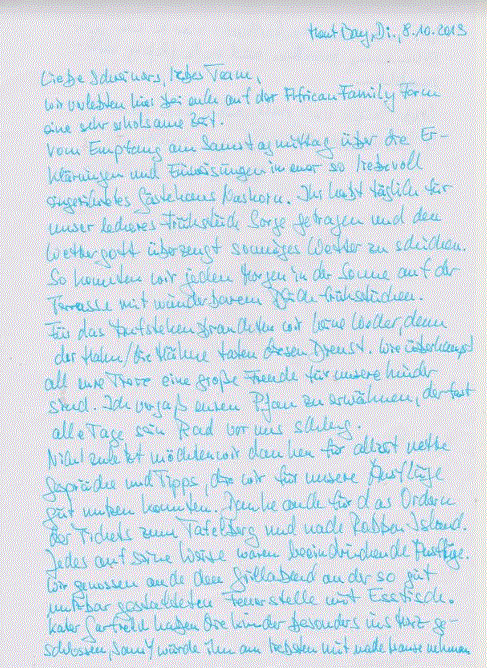 Hout Bay, Di., 8.10.2013
Liebe Schreiners, liebes Team,
wir verlebten hier bei euch auf der African Family Farm
eine sehr erholsame Zeit.
Vom Empfang am Samstagmittag über die Er-
klärungen und Einweisungen in euer so liebevoll
eingerichtetes Gästehaus Nashorn. Ihr habt täglich für
unser leckeres Frühstück Sorge getragen und den
Wettergott überzeugt sonniges Wetter zu schicken.
So konnten wir jeden Morgen in der Sonne auf der
Terrasse mit wunderbarem Blick frühstücken.
Für das Aufstehen brauchten wir keine Wecker, denn
der Hahn/die Hähne taten diesen Dienst. Wie überhaupt
all eure Tiere eine große Freude für unsere Kinder
sind. Ich vergaß euren Pfau zu erwähnen, der fast
alle Tage sein Rad vor uns schlug.
Nicht zuletzt möchten wir danken für allzeit nette
Gespräche und Tipps, die wir für unsere Ausflüge
gut nutzen konnten. Danke auch für das Ordern
der Tickets zum Tafelberg und nach Robben Island.
Jedes auf seine Weise waren beeindruckende Ausflüge.
Wir genossen auch den Grillabend an der so gut
nutzbar gestalteten Feuerstelle mit Esstisch.
Kater Garfield haben die Kinder besonders ins Herz ge-
schlossen, würde ihn am liebsten mit nach Hause nehmen